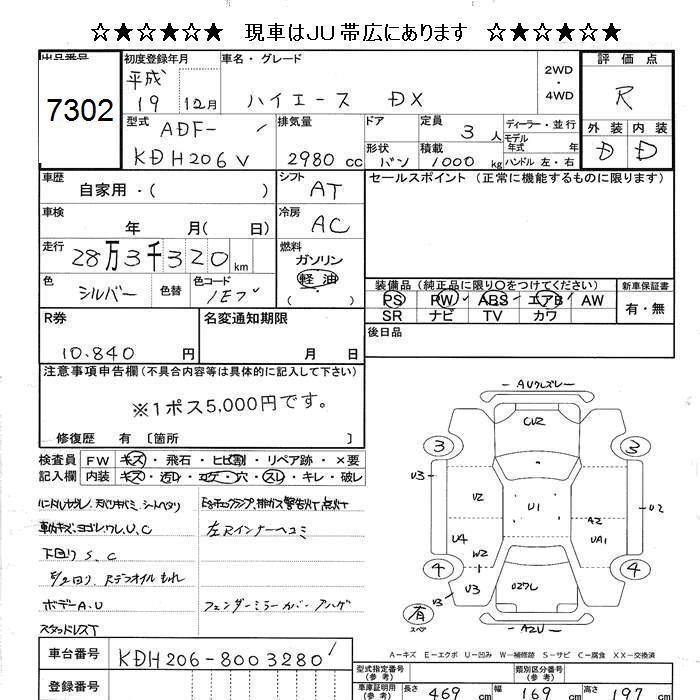 ☆★☆★☆★☆ 現車はJU帯広にあります ☆★☆★☆★☆
出品番号
7302
初度登録年月
平成
19 12月
車名・グレード
ハイエース DX
2WD
・
4WD
評価点
R
外装 内装
D D
型式
ADF-
KDH206V
排気量
2980 cc
ドア
形状
バン
定員
3 人
積載
1000 kg
ディーラー・並行
モデル
年式 年
ハンドル 左・右
車歴
自家用・( )
シフト
AT
セールスポイント (正常に機能するものに限ります)
車検
年 月( 日)
冷房
AC
走行
28万3千320 km
燃料
ガソリン
軽油
色
シルバー
色替
色コード
1E7
装備品 (純正品に限り○をつけてください)
PS PW ABS エアB AW
SR ナビ TV カワ
新車保証書
有・無
R券
10,840 円
名変通知期限
月 日
後日品
注意事項申告欄 (不具合内容等は具体的に記入して下さい)
※1ポス5,000円です。
修復歴 有 〔箇所 〕
検査員
記入欄
FW キズ・飛石・ヒビ割・リペア跡・×要
内装 キズ・汚レ・コゲ・穴・スレ・キレ・破レ
下回りS、C
左Rインナーヘコミ
ボデーA.U
フェンダーミラーカバーハゲ
スタッドレスT
車台番号
KDH206-8003280
登録番号
CU2
3 3
U3
U2
U1
U2
A2
U4
UA1
W2
1
4 4
U3
有
スペア
A2U
A-キズ E-エクボ U-凹み W-補修跡 S-サビ C-腐食 XX-交換済
型式指定番号
(参考)
類別区分番号
(参考)
車庫証明用
(参考)
長さ 469 cm 幅 169 cm 高さ 197 cm